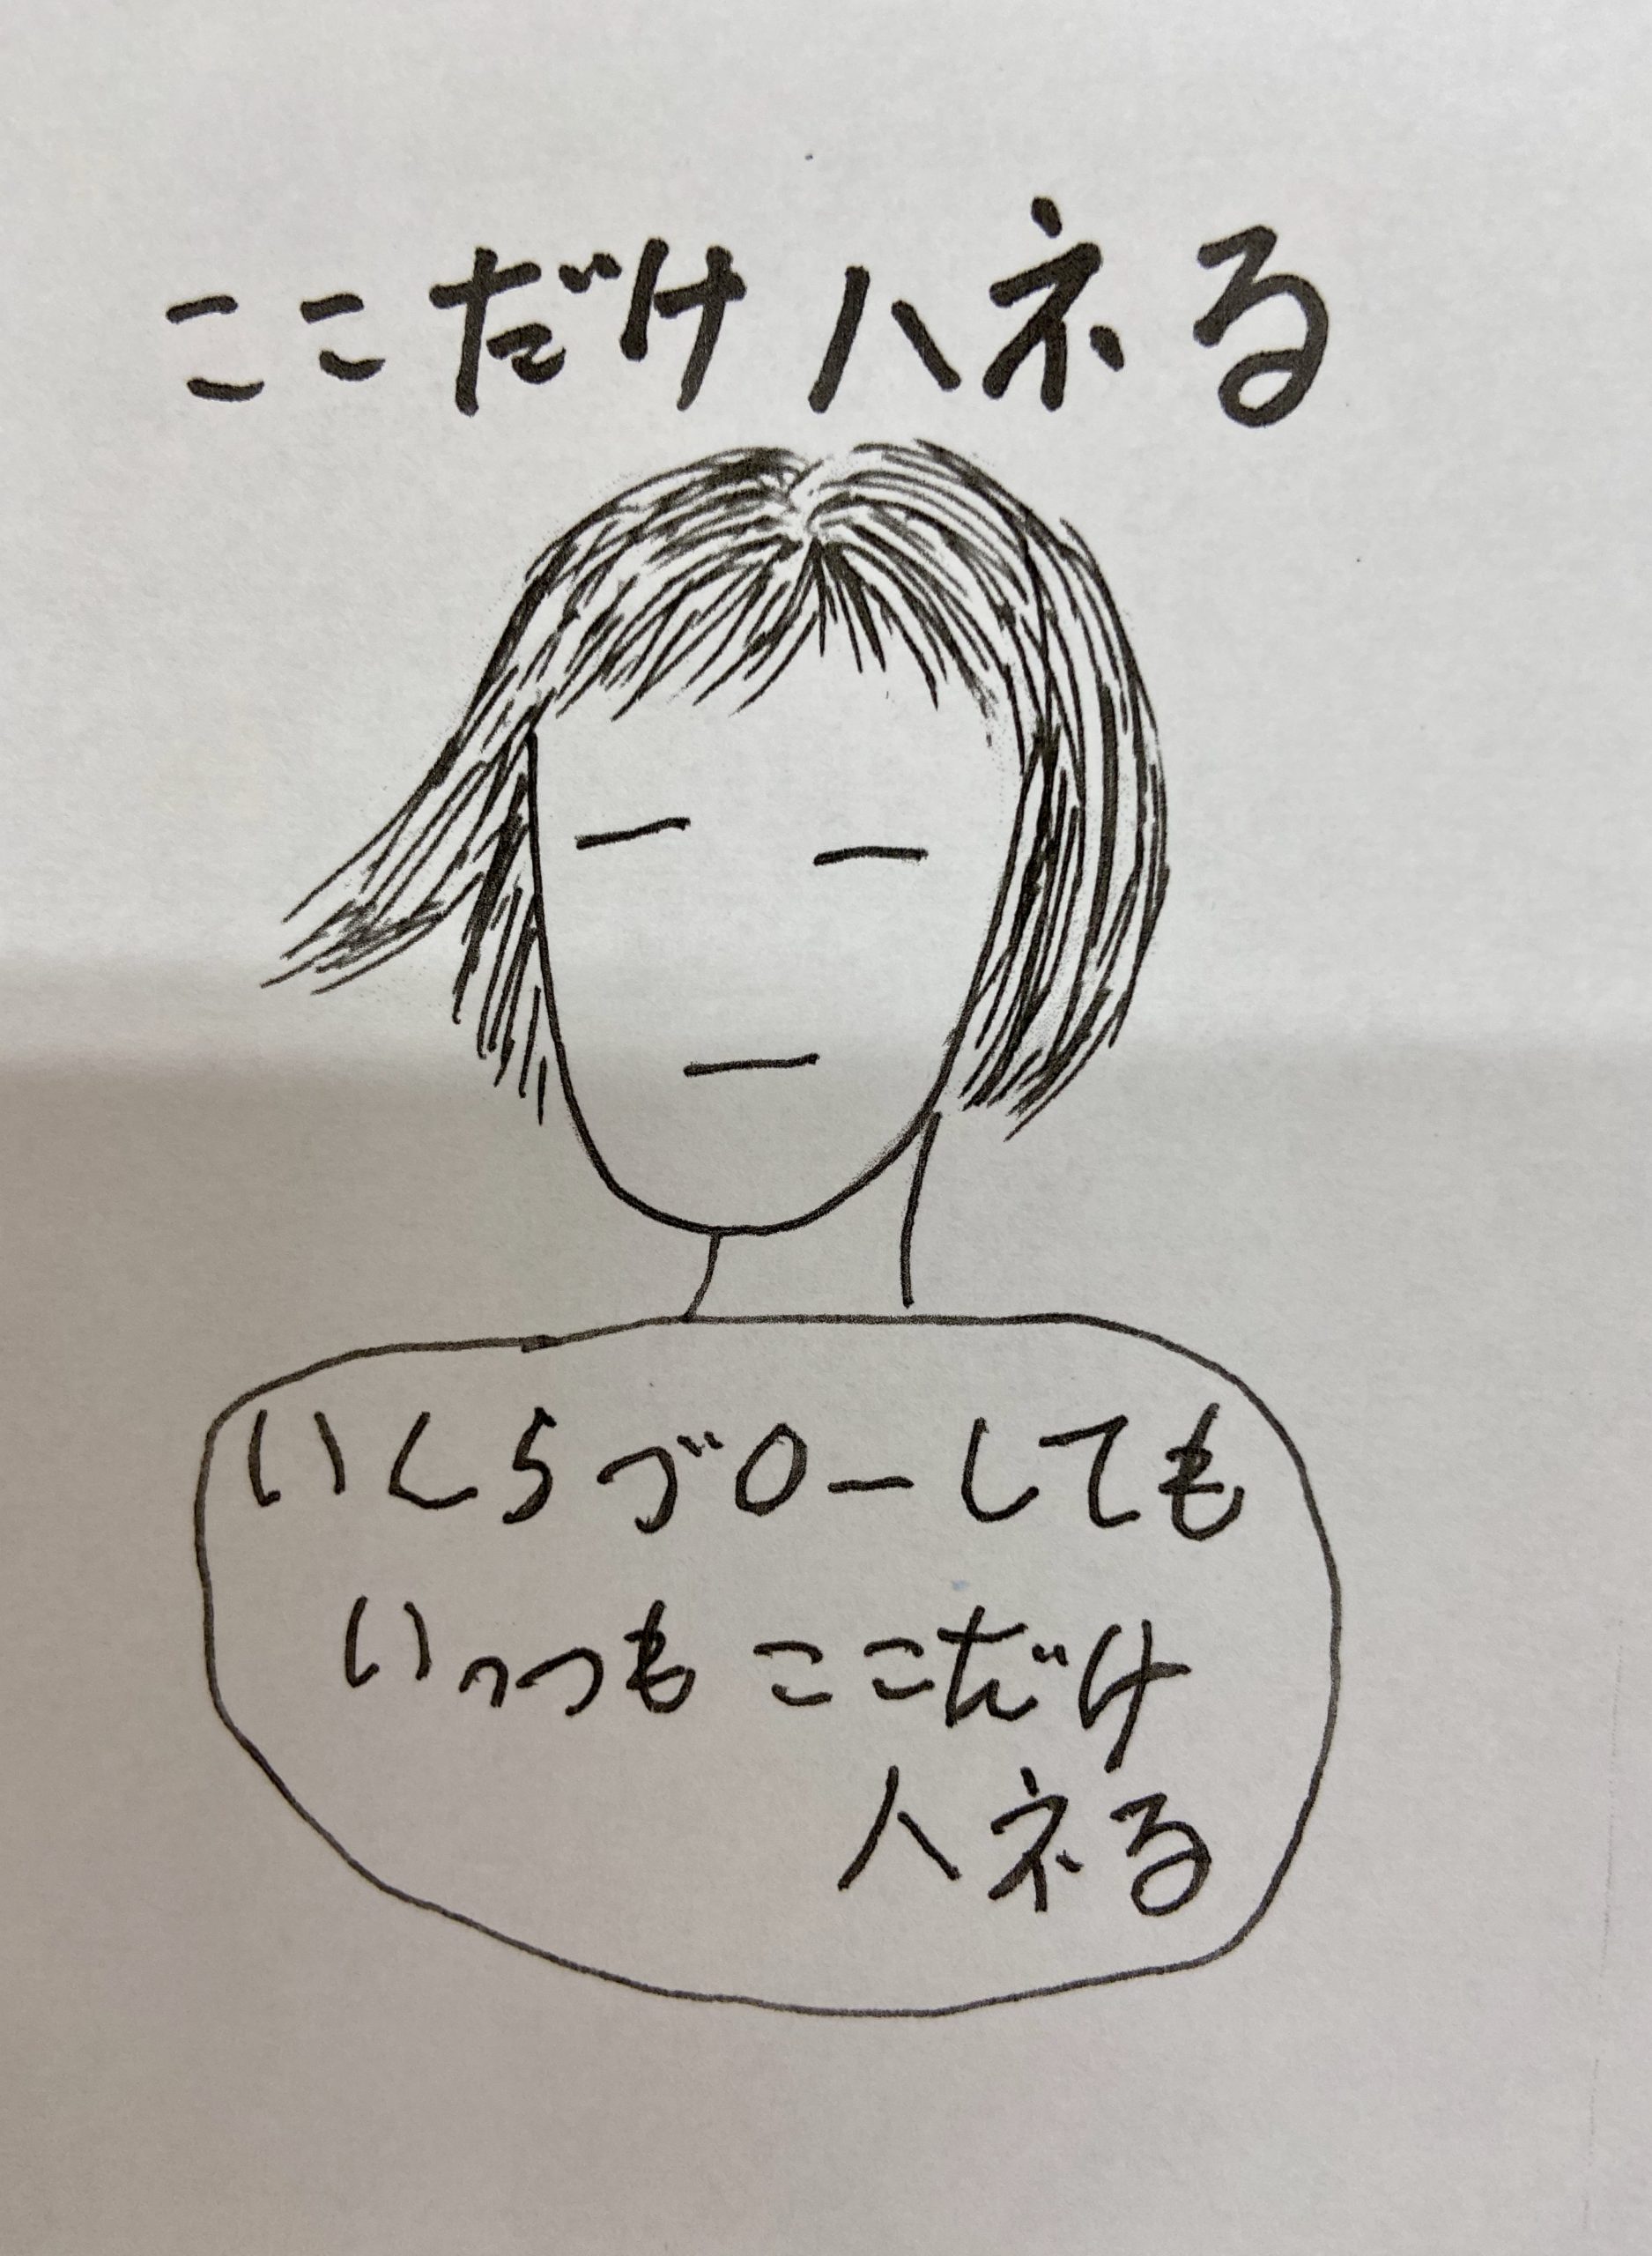 ここだけハネる
いくらブローしても
いっつもここだけ
ハネる